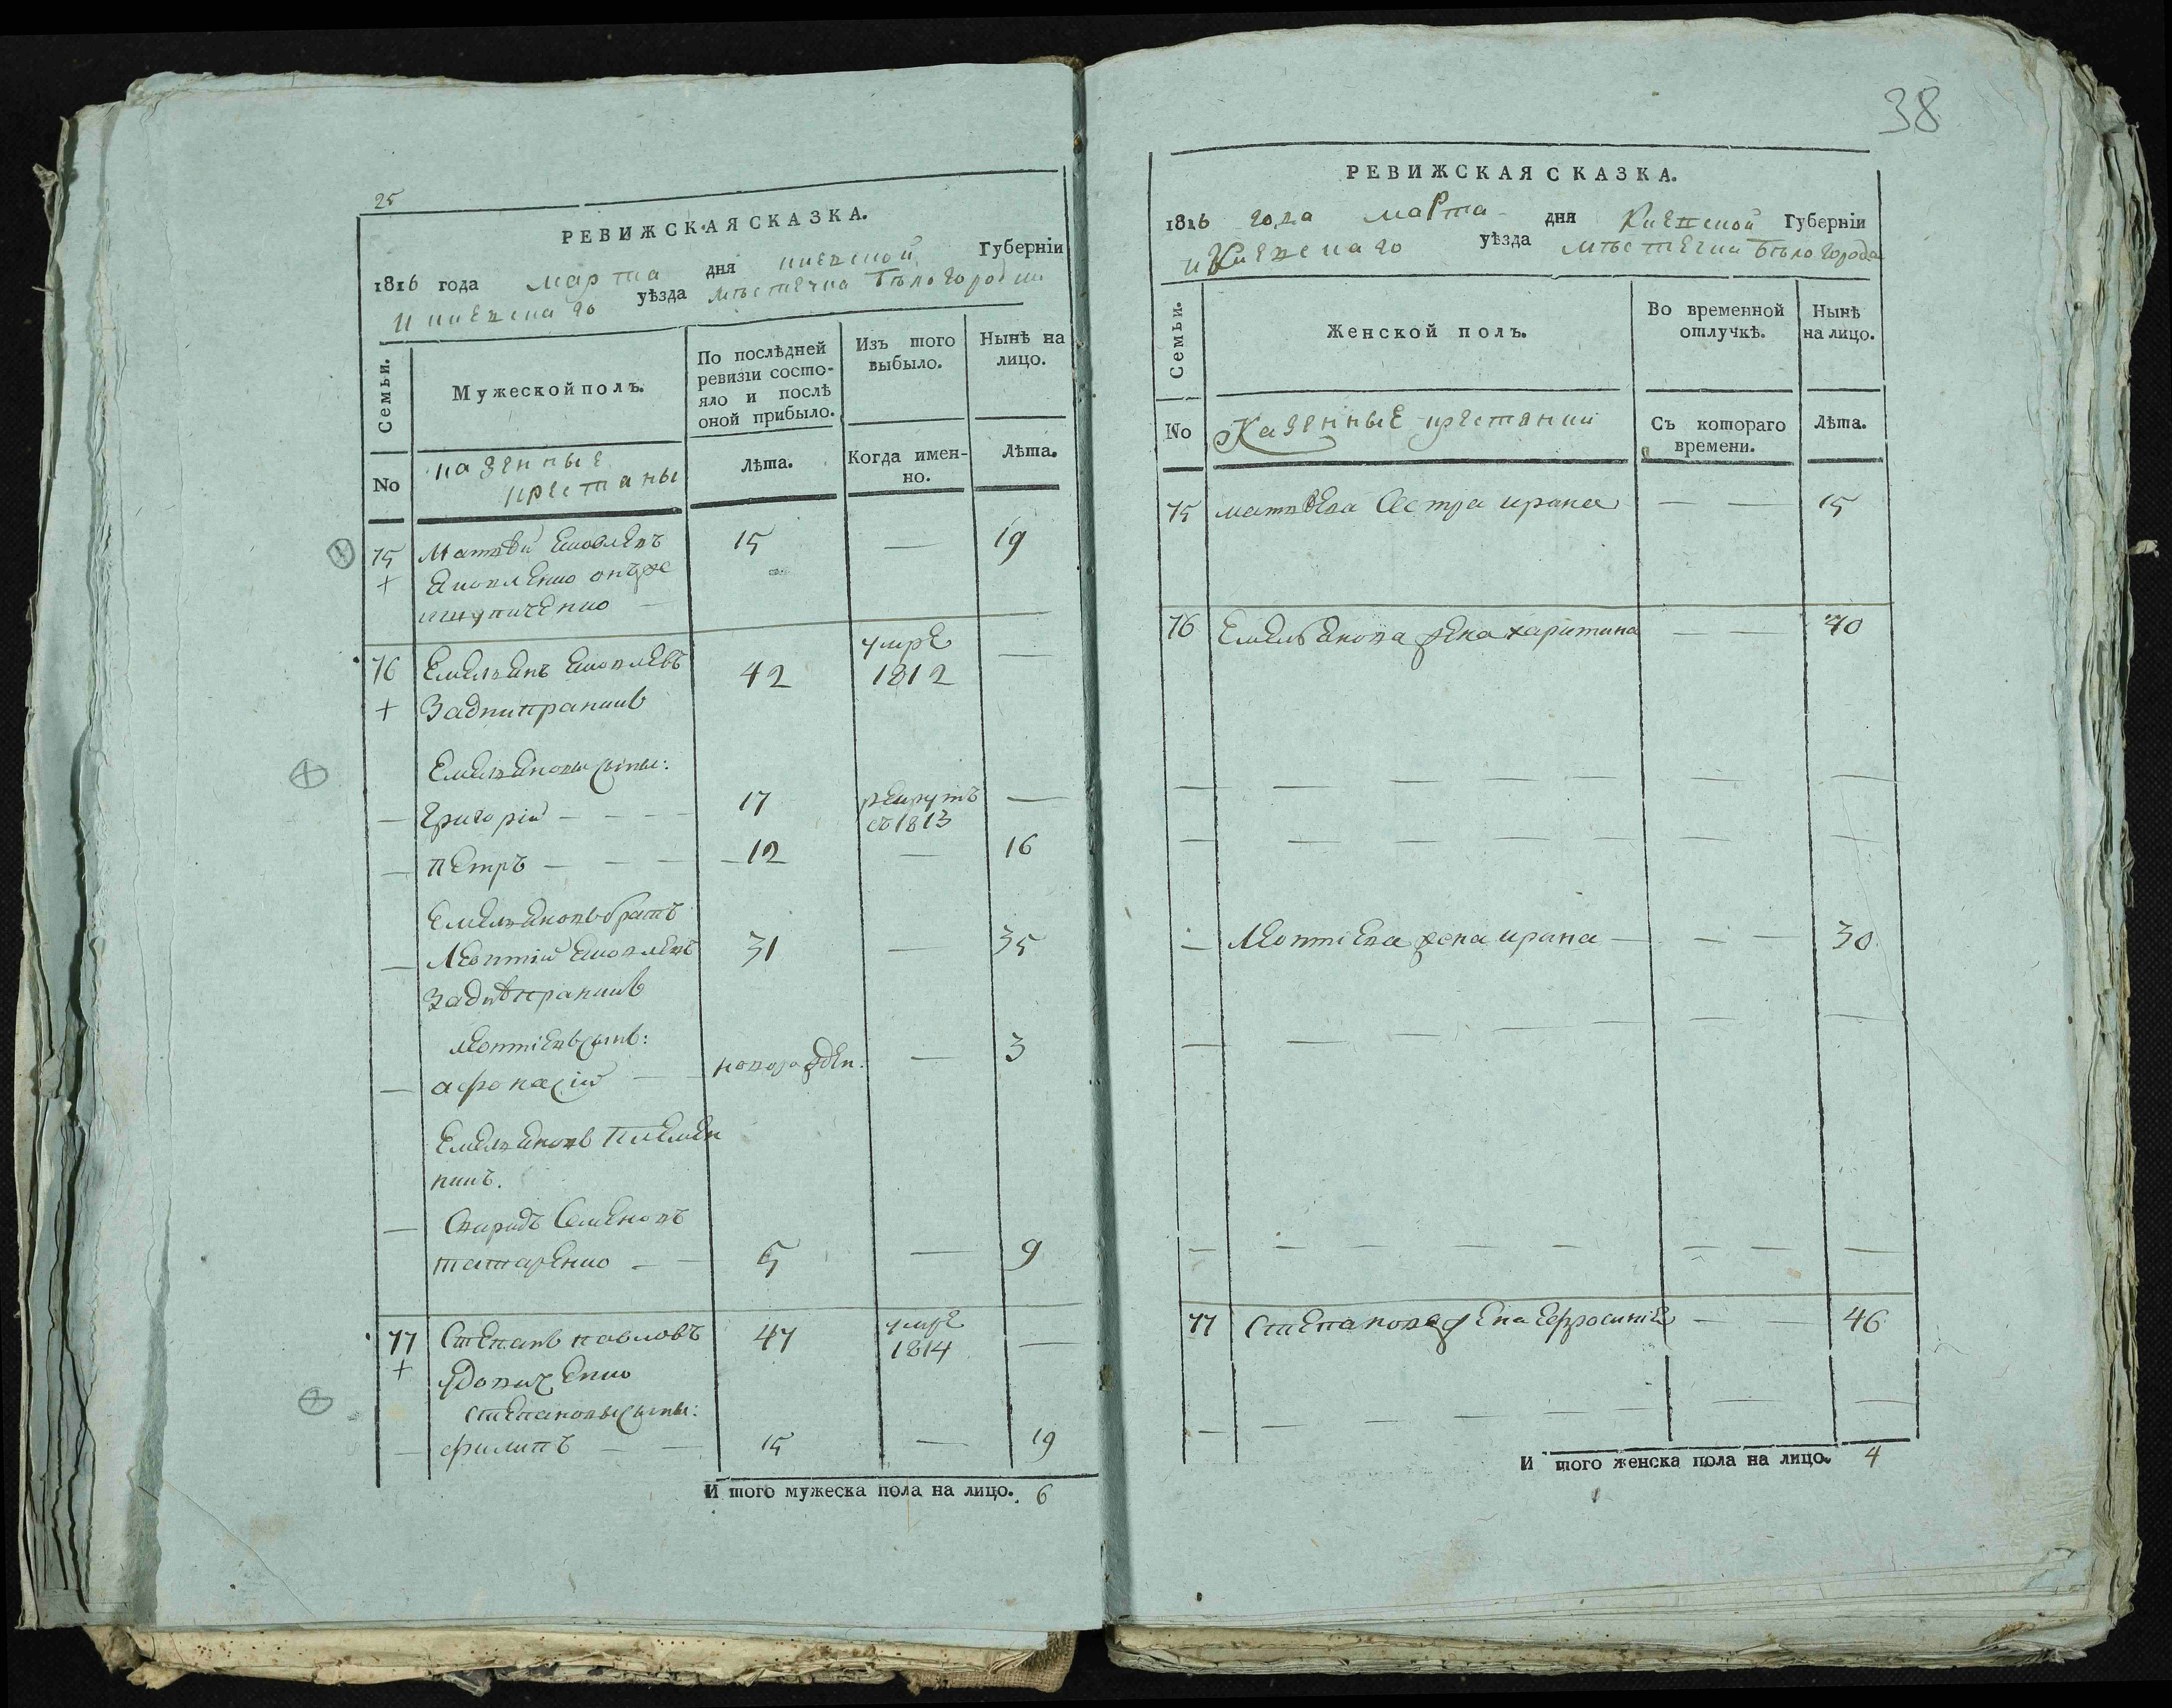 38
25
РЕВИЖСКАЯ СКАЗКА.
1816 года марта дня киевской Губернiи
и киевскаго уѣзда мѣстечка Бѣлогородки
Семьи.
Мужеской полъ.
По послѣдней ревизiи состояло и послѣ оной прибыло.
Изъ того выбыло.
Нынѣ на лицо.
No
казенные крестяны
Лѣта.
Когда именно.
Лѣта.
75 Матвѣй Яковлевъ 15 — 19
+ Яковленко онъже
76 Емельянъ Яковлевъ 42 умре 1812 —
+ Заднипраникъ
Емельяновы сыны:
— Григорiй — — — 17 рекрутъ съ 1813 —
— Петръ — — — 12 — 16
Емельяновъ братъ
— Леонтiй Яковлевъ 31 — 35
Заднѣпраникъ
Леонтiевъ сынъ:
— афонасiй — новорожден. — 3
Емельяновъ племен
никъ.
— Спиридъ Семеновъ
татаренко — — 5 — 9
77 Степанъ павловъ 47 умре 1814 —
+ Удовиченко
степановы сыны:
— филипъ — — 15 — 19
И того мужеска пола на лицо. 6
РЕВИЖСКАЯ СКАЗКА.
1816 года марта дня Киевской Губернiи
и Киевскаго уѣзда мѣстечки Бѣлогорода
Семьи.
Женской полъ.
Во временной отлучкѣ.
Нынѣ на лицо.
No
Казенные крестянки
Съ котораго времени.
Лѣта.
75 матвѣева сестра ирина — — 15
76 Емельянова жена харитина — — 40
— Леонтiева жена ирина — — — 30
77 Степанова жена Ефросинiя — — 46
И того женска пола на лицо. 4